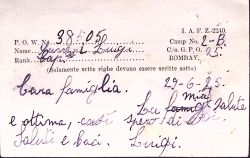 I. A. F. Z-2240.
P. O. W. No. 385050 Camp No. 2-B.
Name Luigi C/o G. P. O. 25.
Rank Cap. BOMBAY.
(Solamente sette righe devono essere scritte sotto)
29-6-45.
Cara famiglia. mia
salute
e ottima, così spero di voi.
Saluti e baci. Luigi.